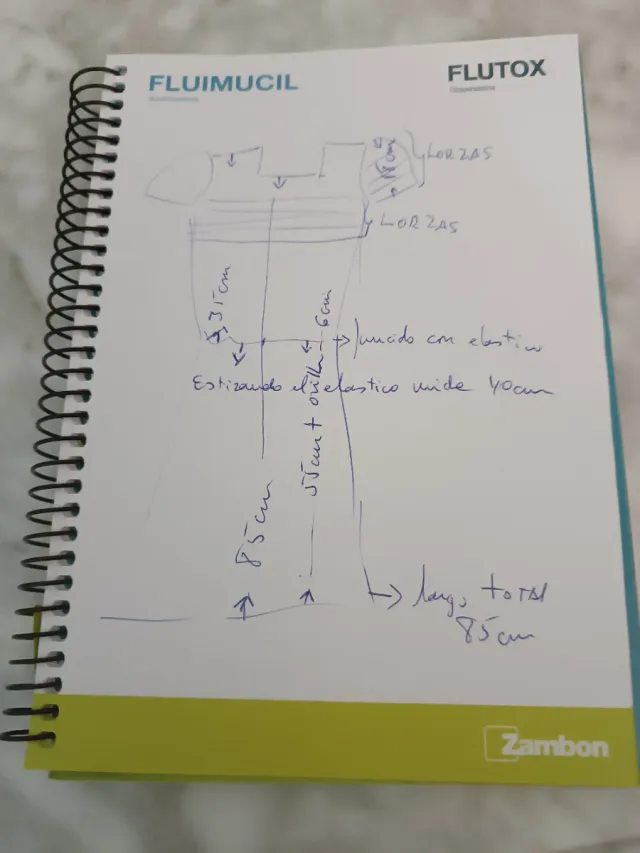 FLUIMUCIL
FLUTOX
LORZAS
LORZAS
35cm
6cm
con elastico
Estirando el elastico mide 40cm
55cm + orilla
85cm
largo total
85cm
Zambon